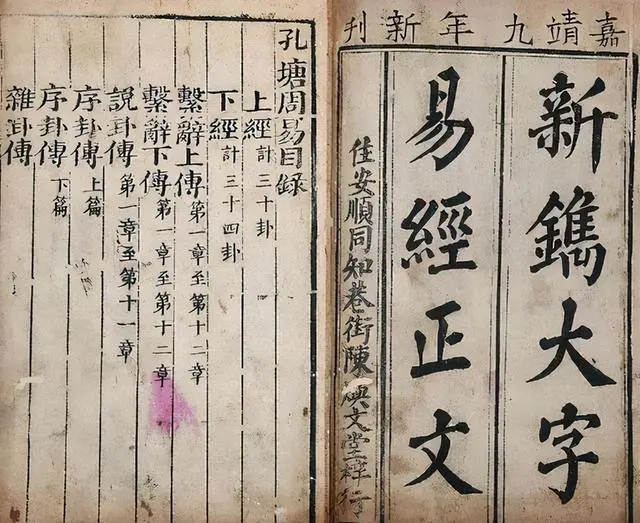 嘉靖九年新刊
新鐫大字
易經正文
住安順同知巷街陳文堂梓行
孔塘周易目錄
上經 計三十卦
下經 計三十四卦
繫辭上傳 第一章至第十二章
繫辭下傳 第一章至第十二章
說卦傳 第一章至第十一章
序卦傳 上篇
序卦傳 下篇
雜卦傳